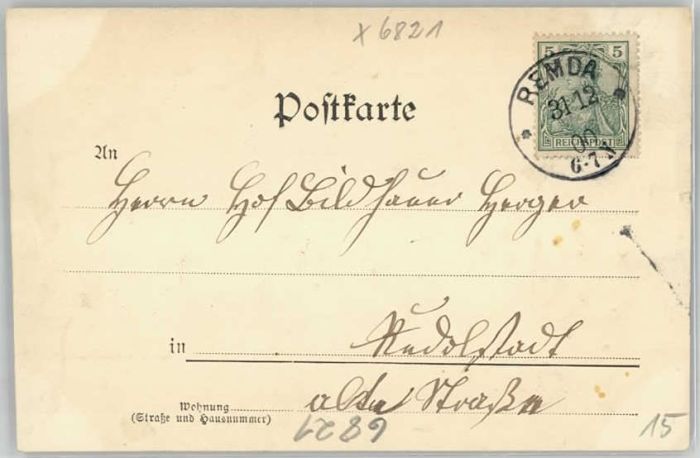 x 6821
5 5
REICHSPOST
REMDA
31.12
00
6-7 N
Postkarte
An
Herrn Hof Bildhauer Herger
in Rudolstadt
alte Straße
Wohnung
(Straße und Hausnummer)
6821
15